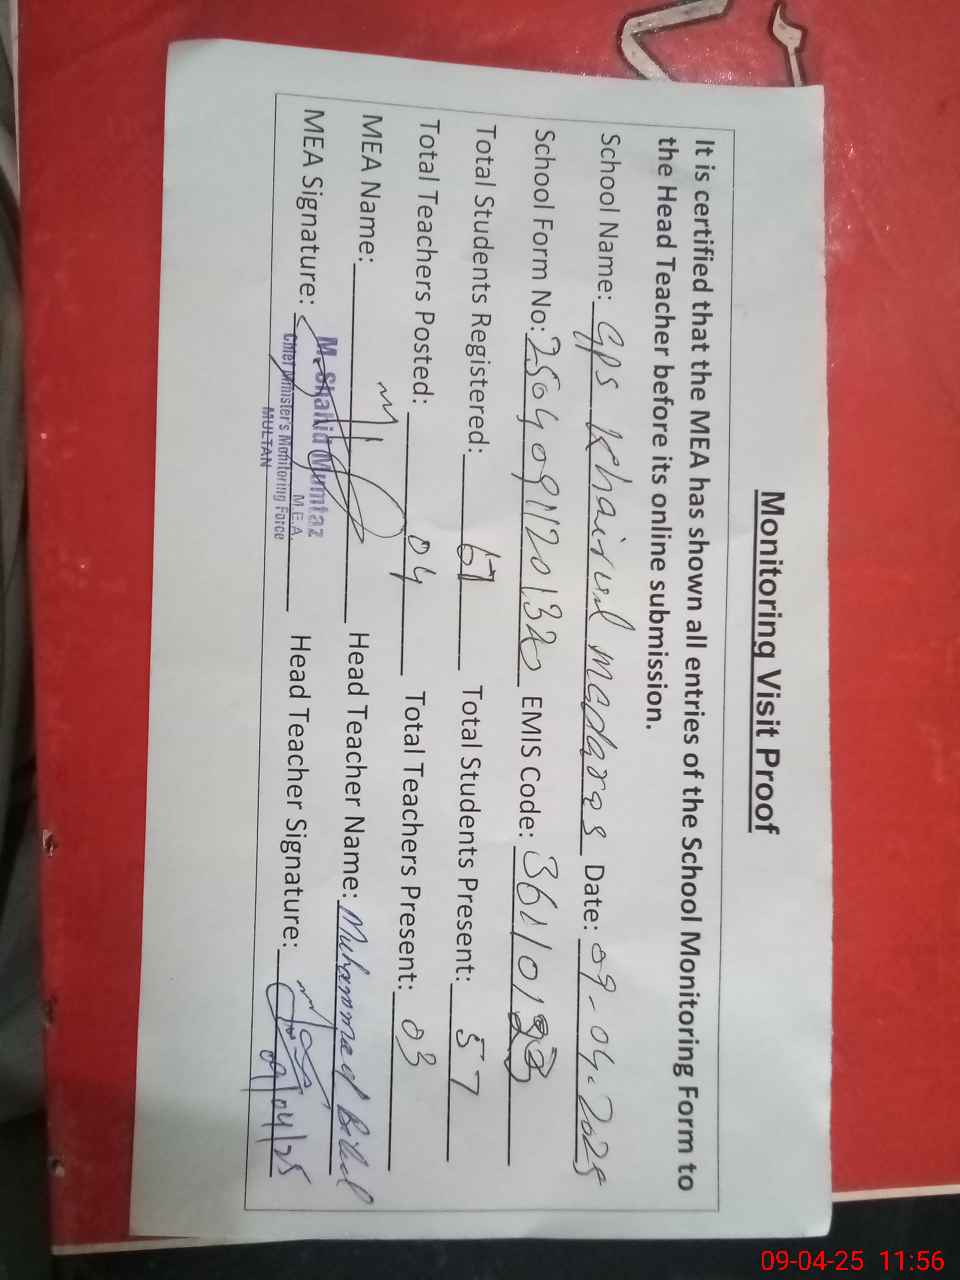 Monitoring Visit Proof
It is certified that the MEA has shown all entries of the School Monitoring Form to
the Head Teacher before its online submission.
School Name: Gps Khairul madaras Date: 09-04-2025
School Form No: EMIS Code:
Total Students Registered: Total Students Present: 57
Total Teachers Posted: 04 Total Teachers Present: 03
MEA Name: Head Teacher Name: Muhammad Bilal
MEA Signature: Head Teacher Signature:
M. Shahid Mumtaz
M.E.A
Chief Minister's Monitoring Force
MULTAN
09/04/25
09-04-25 11:56